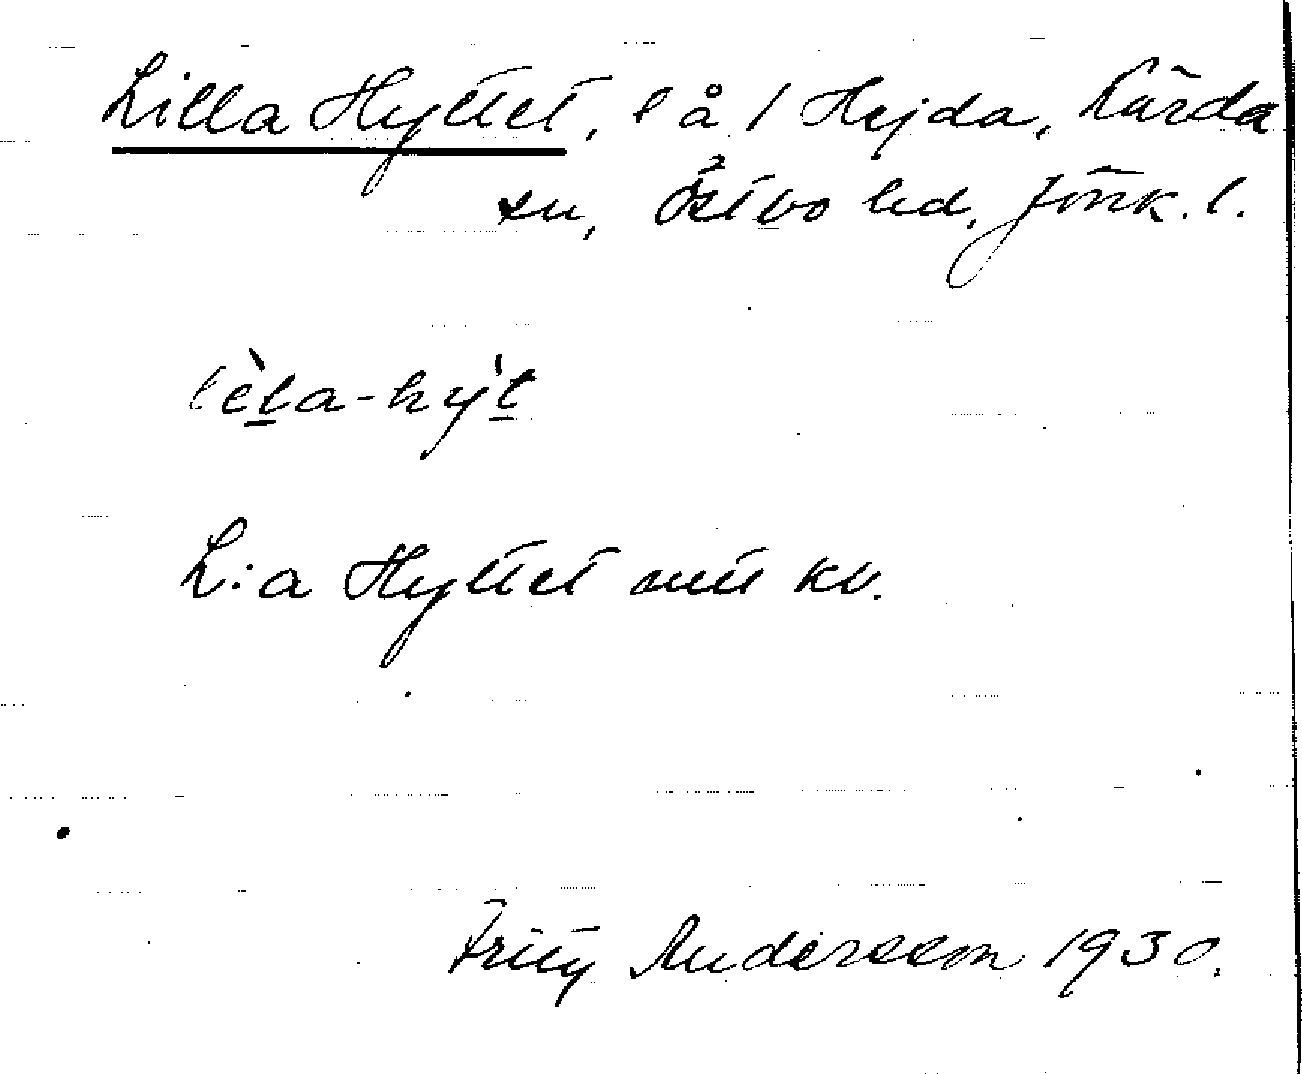 Lilla Hyttet, l å / Hejda, Kärda
sn, Östbo hd, Jönk. l.
lèta-hyt
L:a Hyttet mtl kv.
Fritz Andersson 1930.